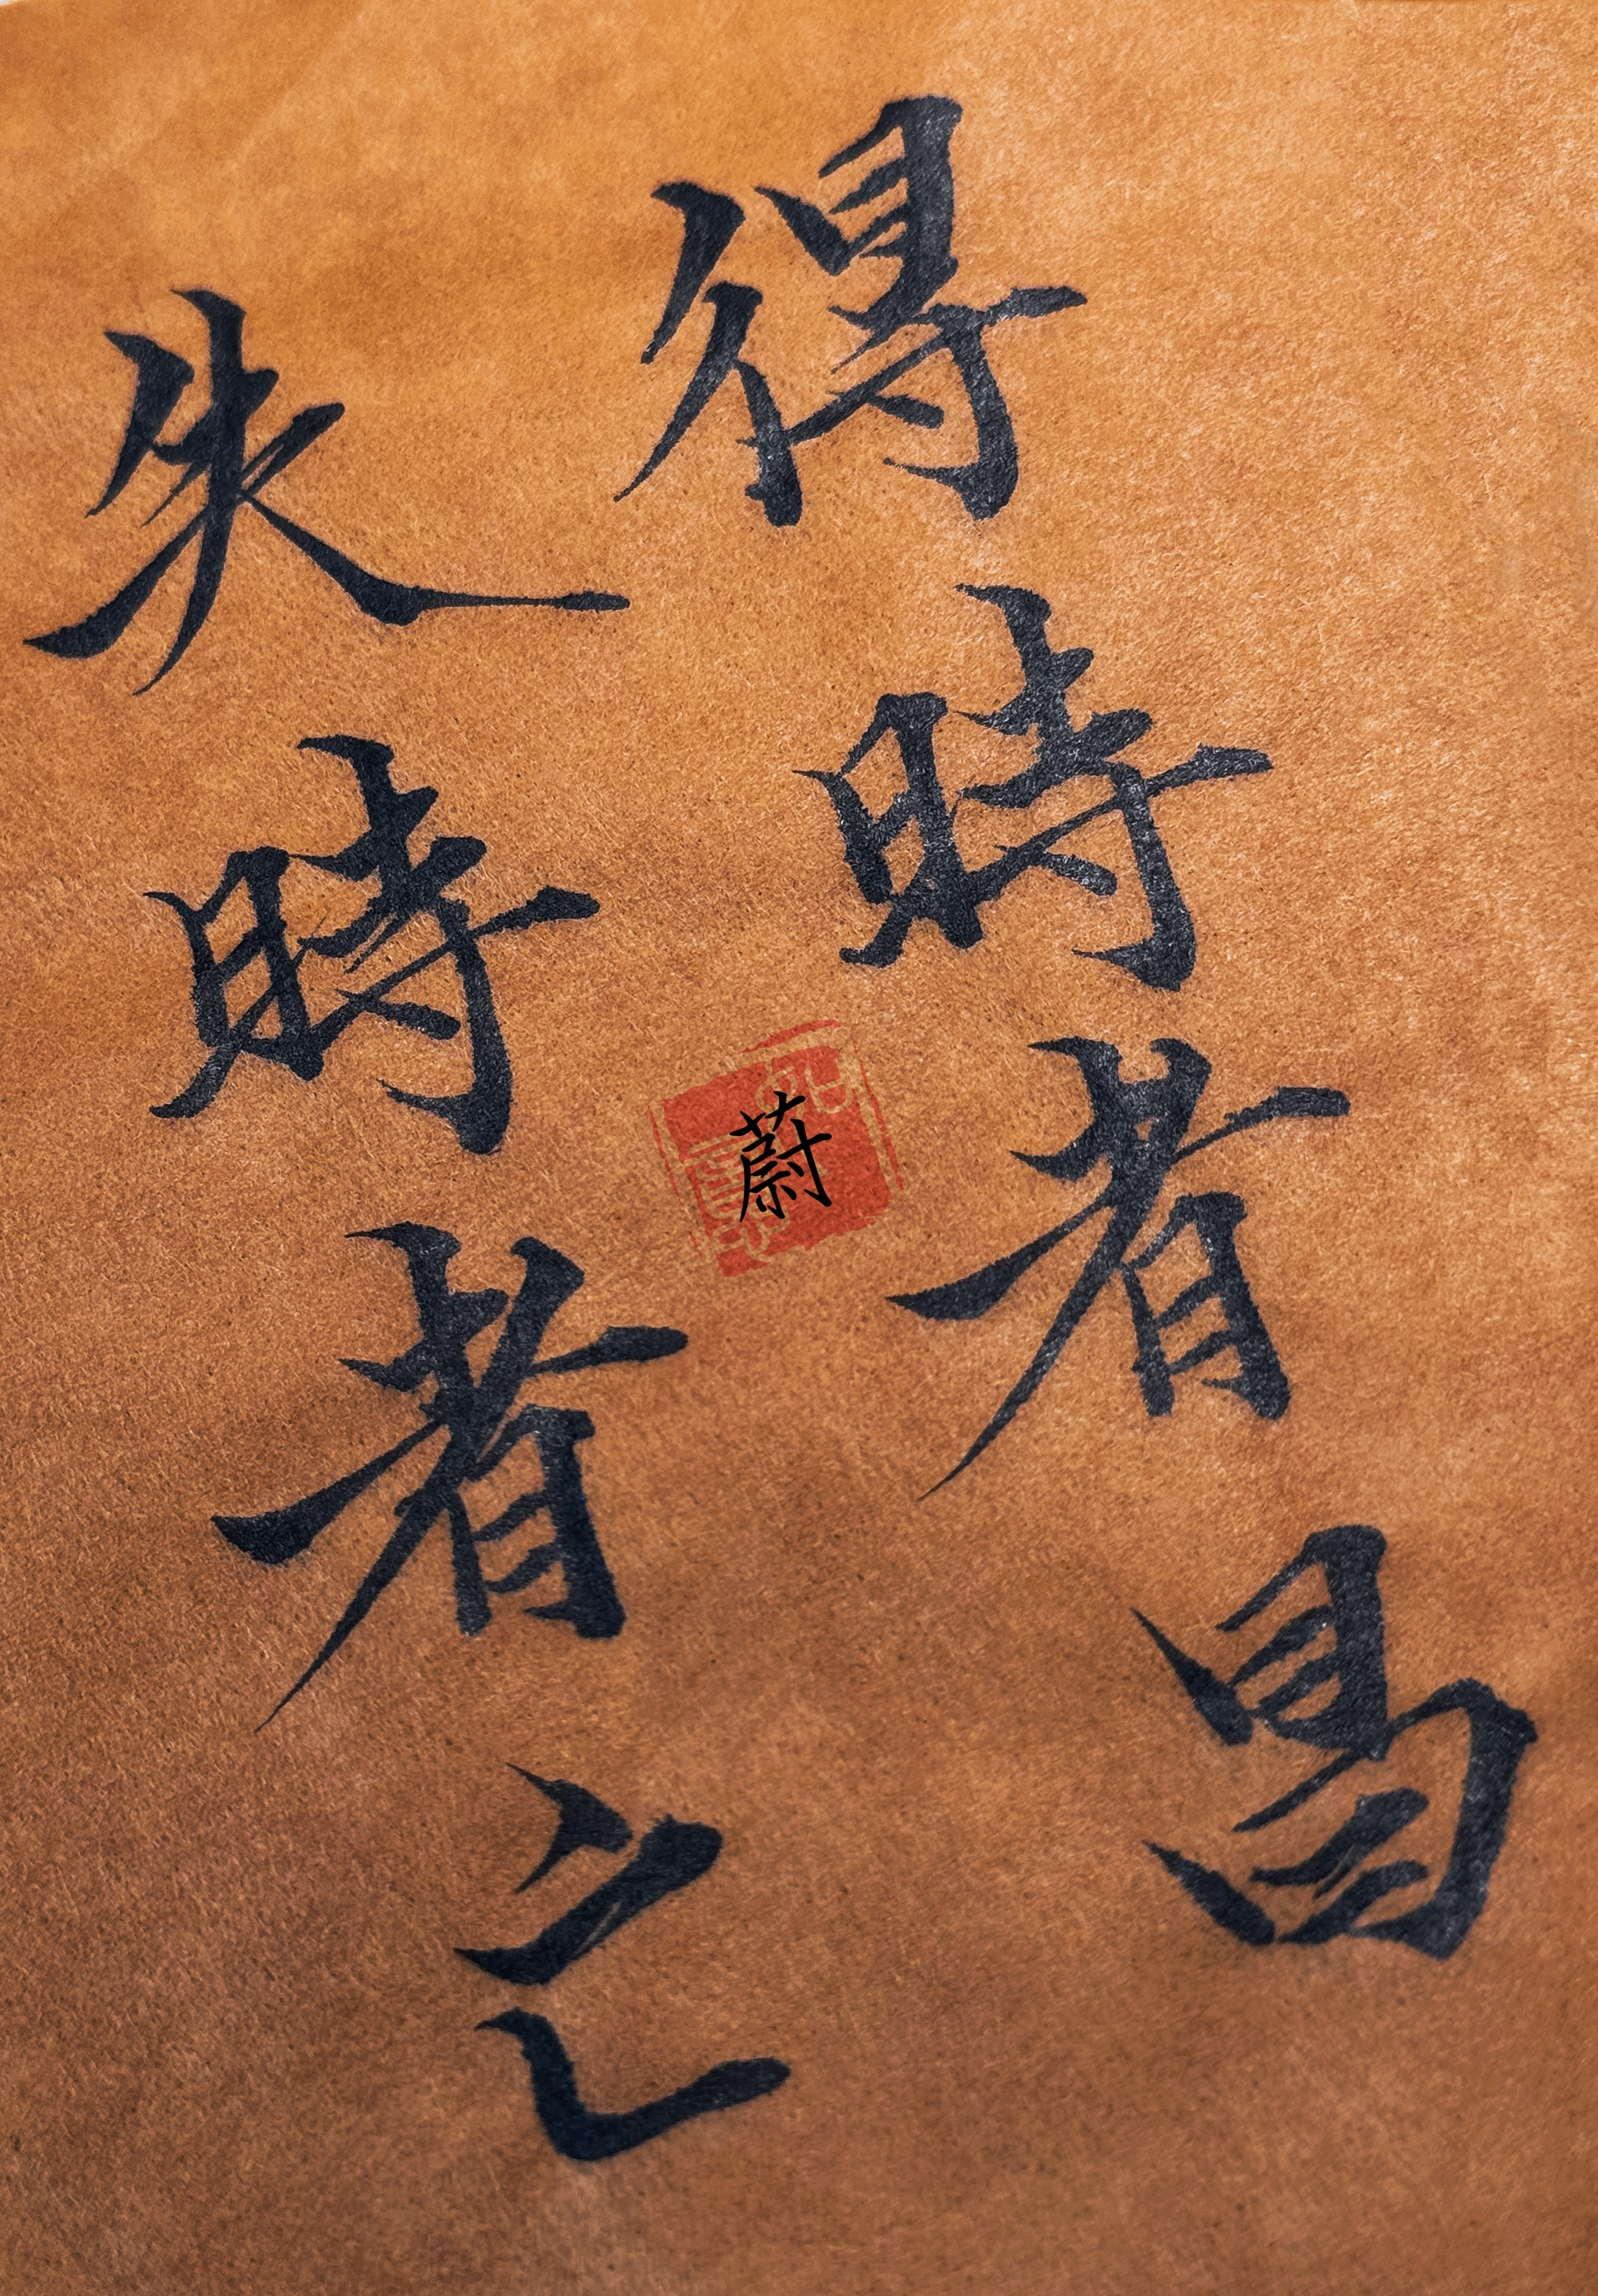 得時者昌
失時者亡
蔚